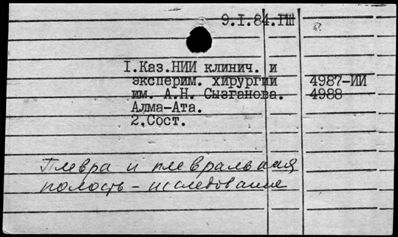 9.I.84.ГШ
I.Каз.НИИ клинич. и
эксперим. хирургии
им. А.Н. Сызганова.
Алма-Ата.
2.Сост.
4987-ИИ
4988
Плевра и плевральная
полость - исследование